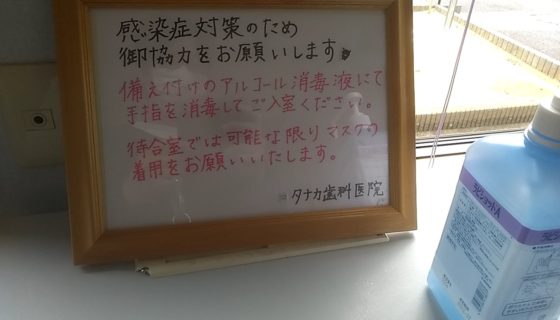 感染症対策のため
御協力をお願いします
備え付けのアルコール消毒液にて
手指を消毒してご入室ください。
待合室では可能な限りマスクの
着用をお願いいたします。
タナカ歯科医院
ラビショットA